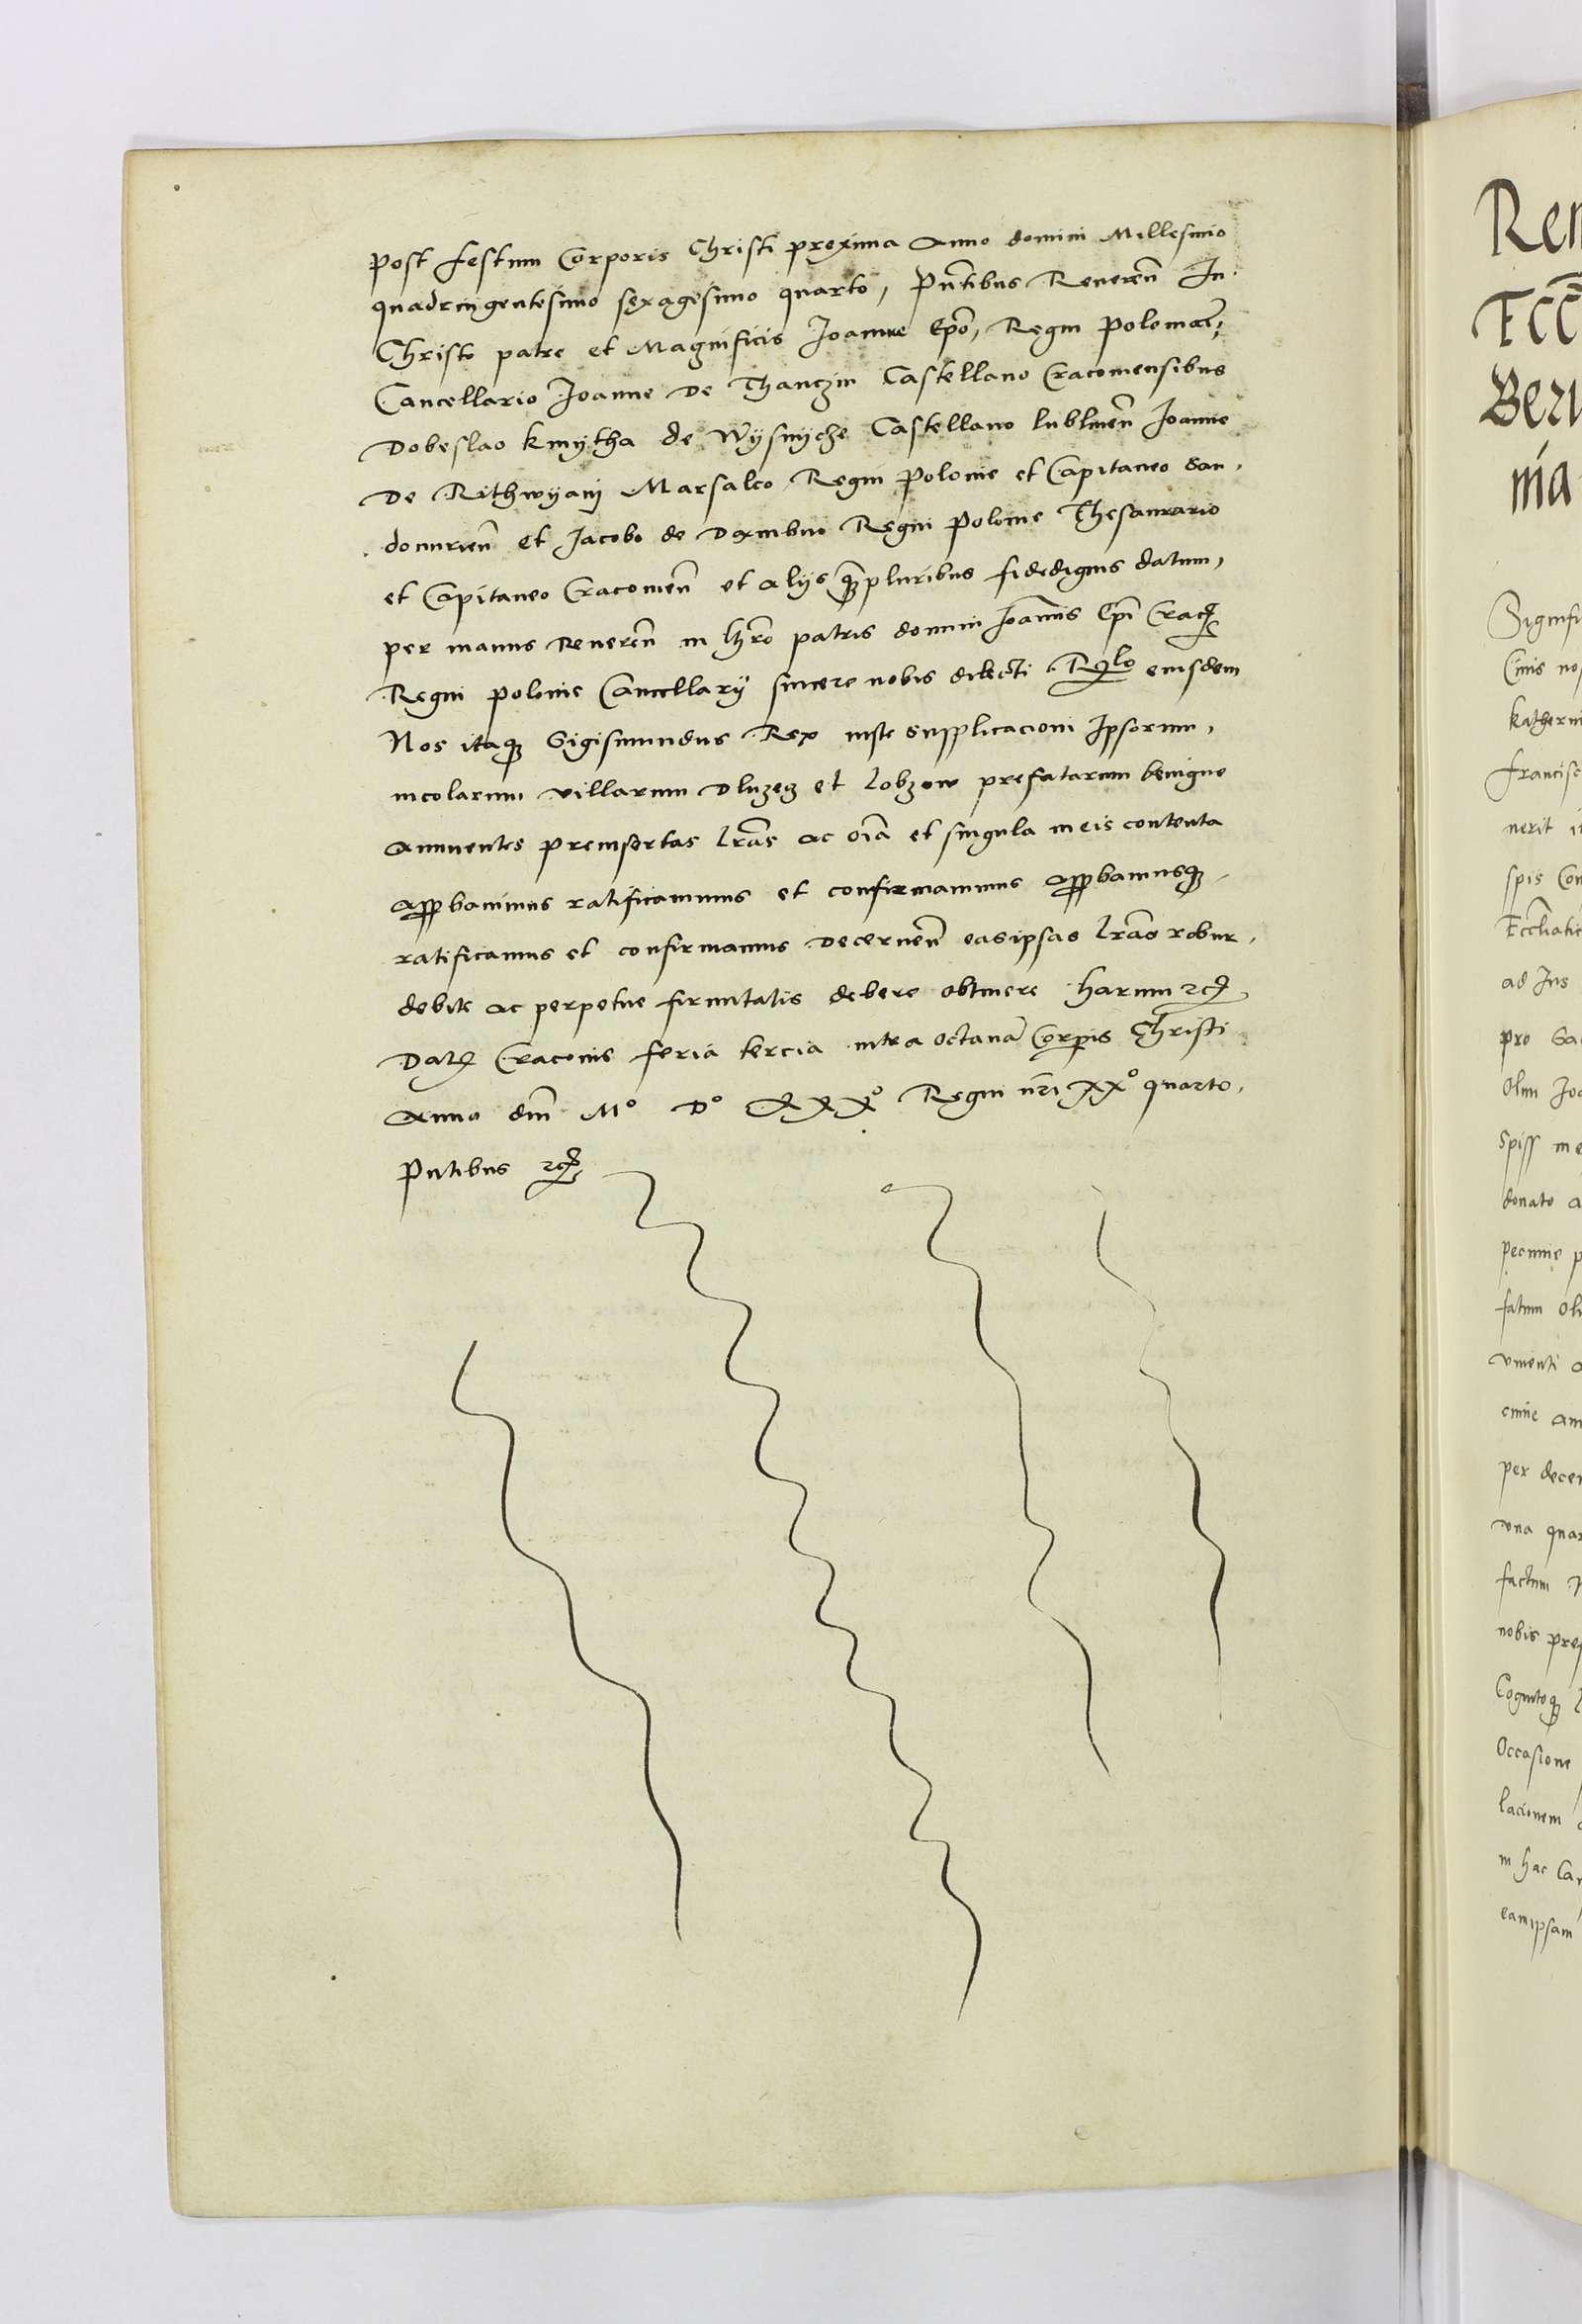 post festum Corporis Christi proxima Anno domini Millesimo
quadringentesimo sexagesimo quarto, Pñtibus Reveren̄ In
Christo patre et Magnificis Joanne Epō, Regni Polonie,
Cancellario Joanne de Thanczin Castellano Cracoviensibus
Dobeslao Kmytha de Wysnycze Castellano lublineñ Joanne
De Rithwyany Marsalco Regni Polonie et Capitaneo San,
domirieñ et Jacobo de Dambno Regni Polonie Thesaurario
et Capitaneo Cracovieñ et alys q̃pluribus fidedignis datum,
per manus Revereñ in Chrō patris domini Joannis Epī Crac
Regni Polonie Cancellarÿ sincere nobis dilecti Rlo eiusdem
Nos itaq Sigismundus Rex iuste supplicacioni Ipsorum,
incolarum villarum Dluzecz et lobzow prefatarum benigne
annuentes preinsertas lrãs ac oĩa et singula in eis contenta
approbavimus ratificavimus et confirmavimus approbamusq
ratificamus et confirmamus decerneñ easipsas lrãs robur
debite ac perpetue firmitatis debere obtinere harum rc
Dat Cracovie feria tercia intra octavã Corpis Christi
Anno dnĩ Mº Dº XXXº Regni nrĩ XXº quarto.
Pntibus rc
Ren
Ecc̃
Bern
Signifi
katherin
francisc
nerit
spis Con
ad Ius
pro Sa
Olim Joa
Spiss
donato
pecunie
fatum
per decem
una quar
factum
nobis
Cognitoq
Occasione
lacionem
in hac Ca
eamipsam